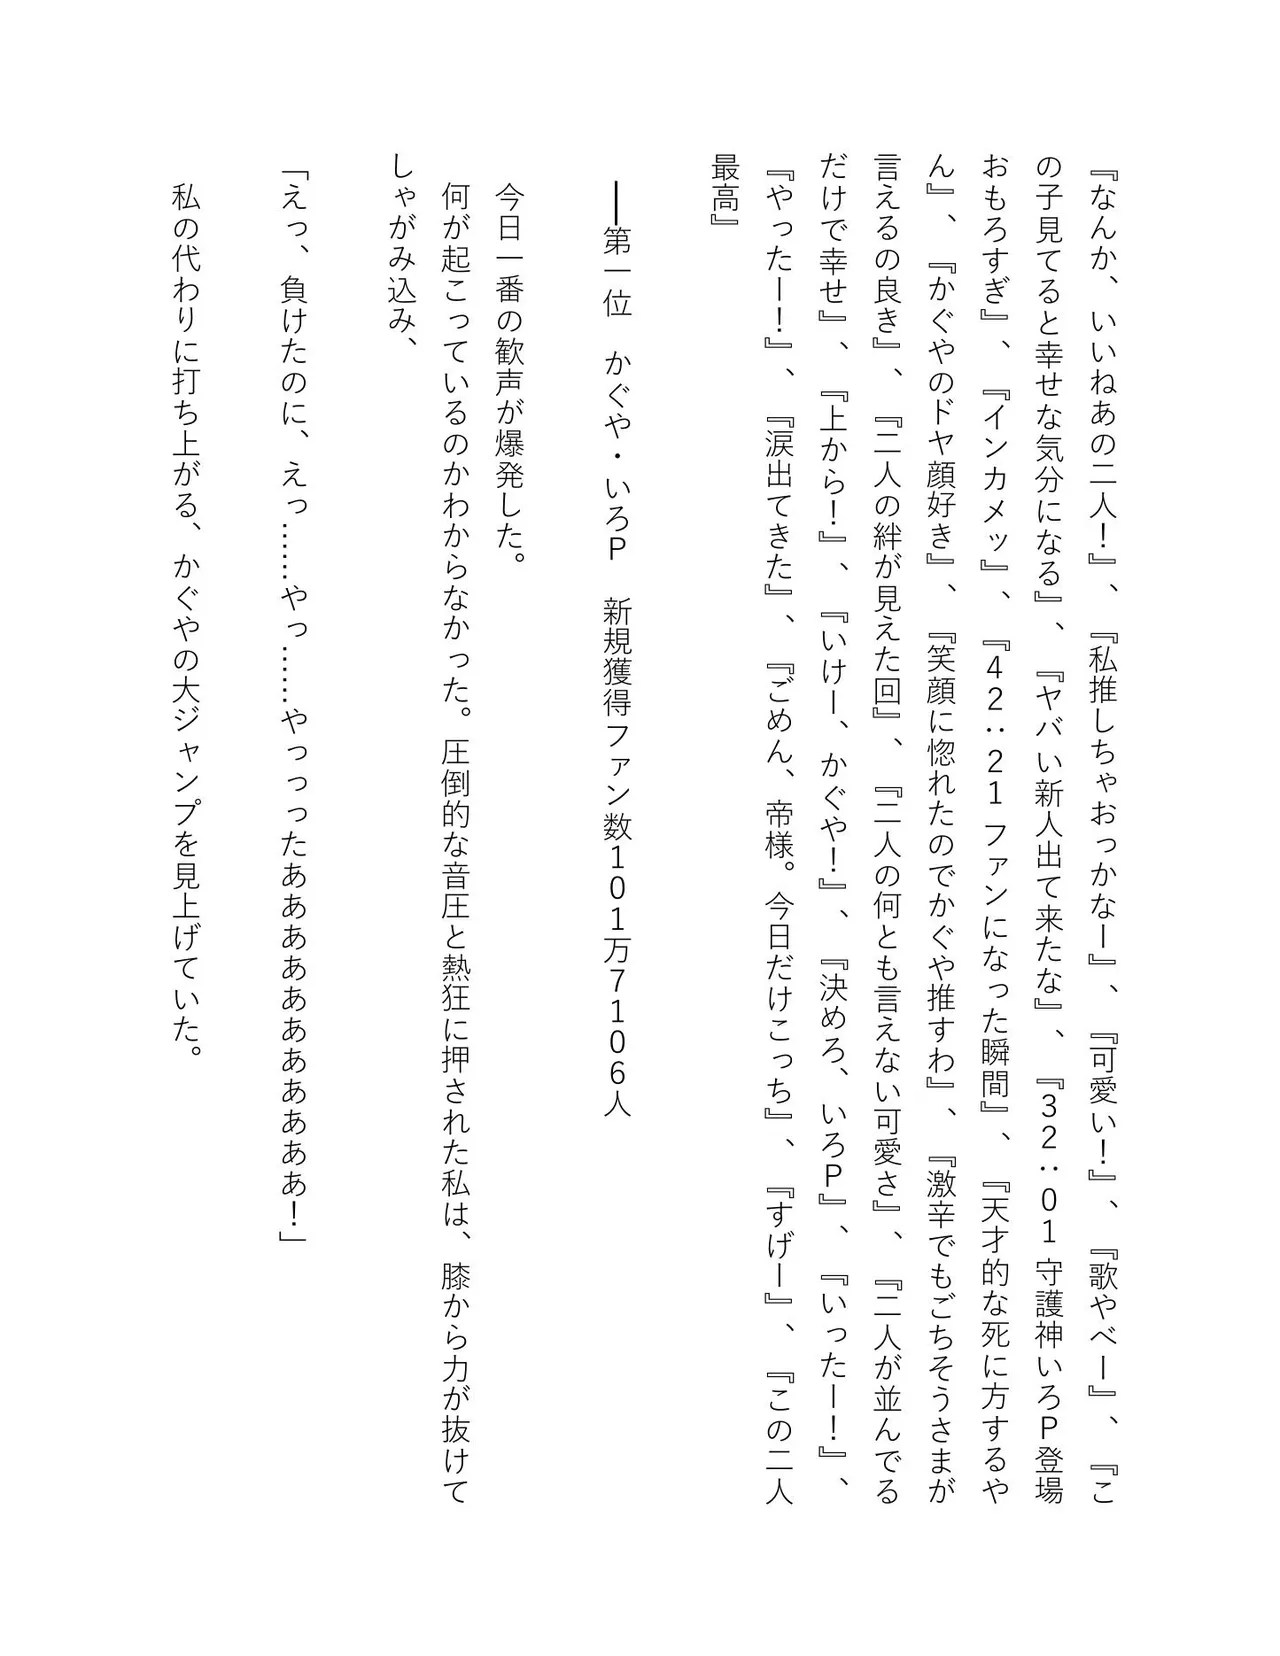 『なんか、いいねあの二人！』、『私推しちゃおっかなー』、『可愛い！』、『歌やべー』、『こ
の子見てると幸せな気分になる』、『ヤバい新人出て来たな』、『32：01守護神いろP登場
おもろすぎ』、『インカメッ』、『42：21ファンになった瞬間』、『天才的な死に方するや
ん』、『かぐやのドヤ顔好き』、『笑顔に惚れたのでかぐや推すわ』、『激辛でもごちそうさまが
言えるの良き』、『二人の絆が見えた回』、『二人の何とも言えない可愛さ』、『二人が並んでる
だけで幸せ』、『上から！』、『いけー、かぐや！』、『決めろ、いろP』、『いったー！』、
『やったー！』、『涙出てきた』、『ごめん、帝様。今日だけこっち』、『すげー』、『この二人
最高』
──第一位　かぐや・いろP　新規獲得ファン数101万7106人
　今日一番の歓声が爆発した。
　何が起こっているのかわからなかった。圧倒的な音圧と熱狂に押された私は、膝から力が抜けて
しゃがみ込み、
「えっ、負けたのに、えっ……やっ……やっっったあああああああああああ！」
　私の代わりに打ち上がる、かぐやの大ジャンプを見上げていた。